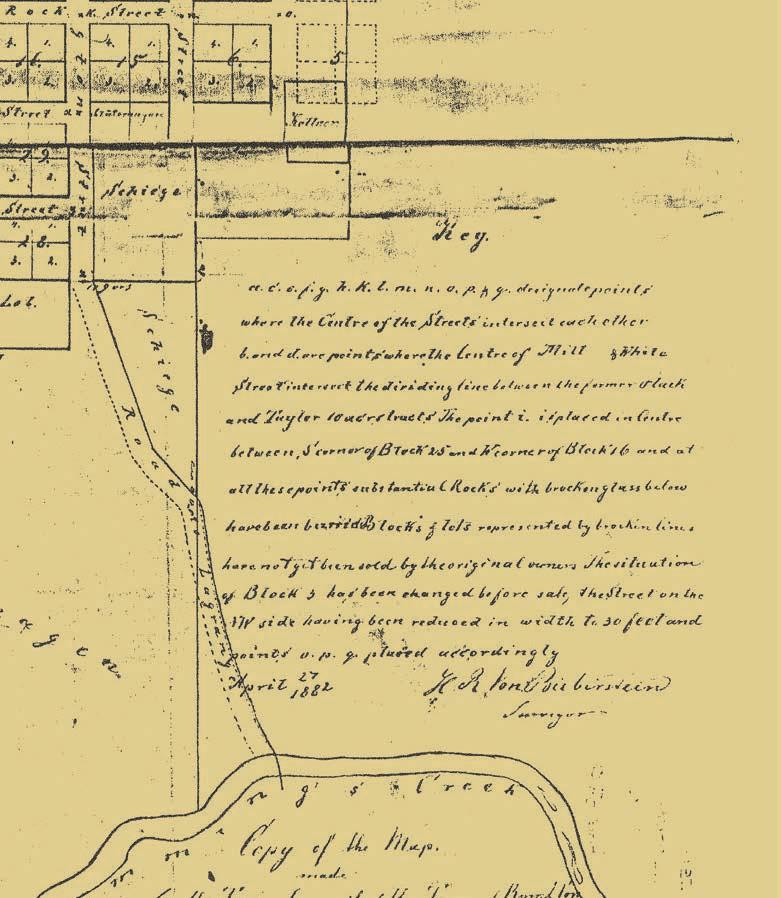 Rock Street
4. 1. 4. 1. 4. 1.
16. 15 6. 5
3. 2. 3. 2. 3. 2.
Street
Kellner
29.
3. 2.
Schiege
Street
4. 1.
28.
3. 2.
Lot.
Schiege
Road
Lagrange
Key.
a. c. e. f. g. h. k. l. m. n. o. p. & q. designate points
where the Centre of the Streets intersect each other
b. and d. are points where the Centre of Mill & White
Street intersect the dividing line between the former
and Taylor 10 acre tracts The point i. is placed in Centre
between S corner of Block 25 and W corner of Block 16 and at
all these points substantial Rocks with brocken glass below
have been burried Blocks & lots represented by brocken lines
have not yet been sold by the original owners The situation
of Block 5 has been changed before sale, the Street on the
NW side having been reduced in width to 30 feet and
points o. p. q. placed accordingly
April 27 1882
H. R. Von Bieberstein
Surveyor
ng's Creek
Copy of the Map.
made